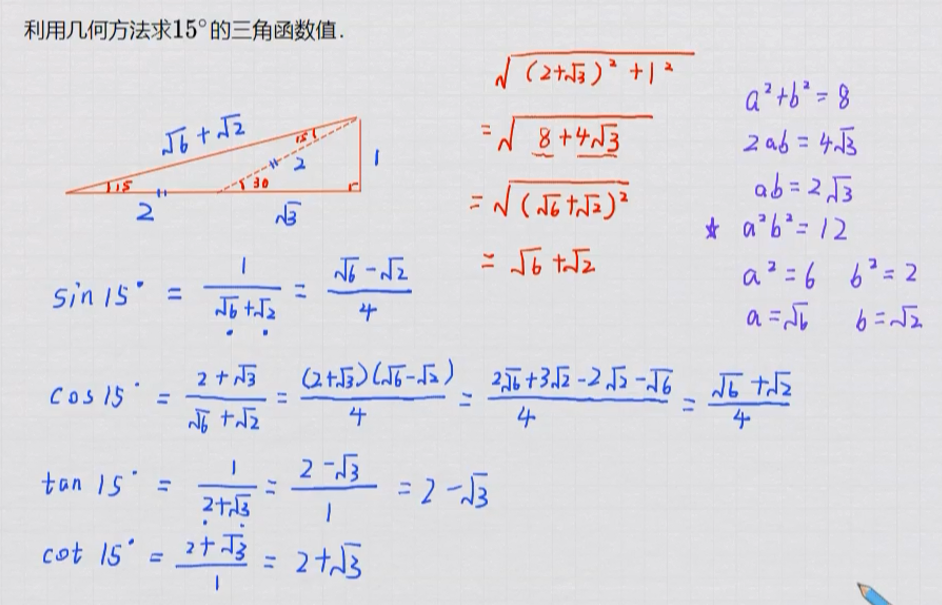 利用几何方法求15°的三角函数值.
√6+√2
15
15
2
30
1
2
√3
√((2+√3)²+1²)
=√(8+4√3)
=√((√6+√2)²)
=√6+√2
a²+b²=8
2ab=4√3
ab=2√3
★ a²b²=12
a²=6 b²=2
a=√6 b=√2
sin15° = 1/(√6+√2) = (√6-√2)/4
cos15° = (2+√3)/(√6+√2) = (2+√3)(√6-√2)/4 = (2√6+3√2-2√2-√6)/4 = (√6+√2)/4
tan 15° = 1/(2+√3) = (2-√3)/1 = 2-√3
cot 15° = (2+√3)/1 = 2+√3